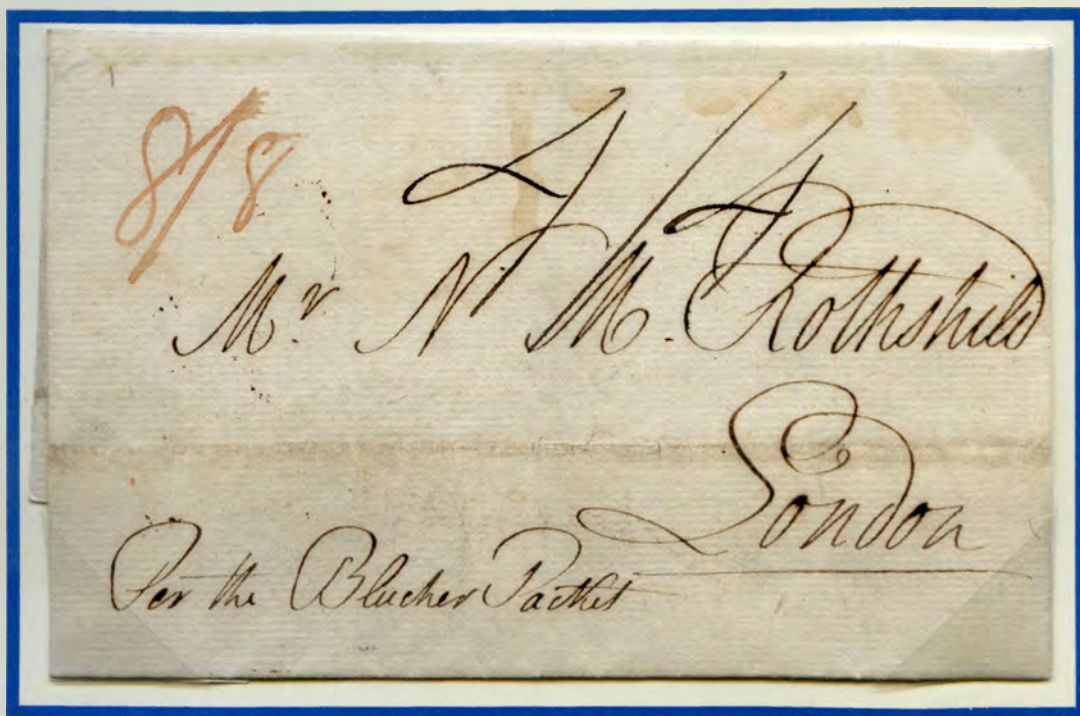 8/8
4/4
Mr. N. M. Rothshild
London
Per the Blucher Packet